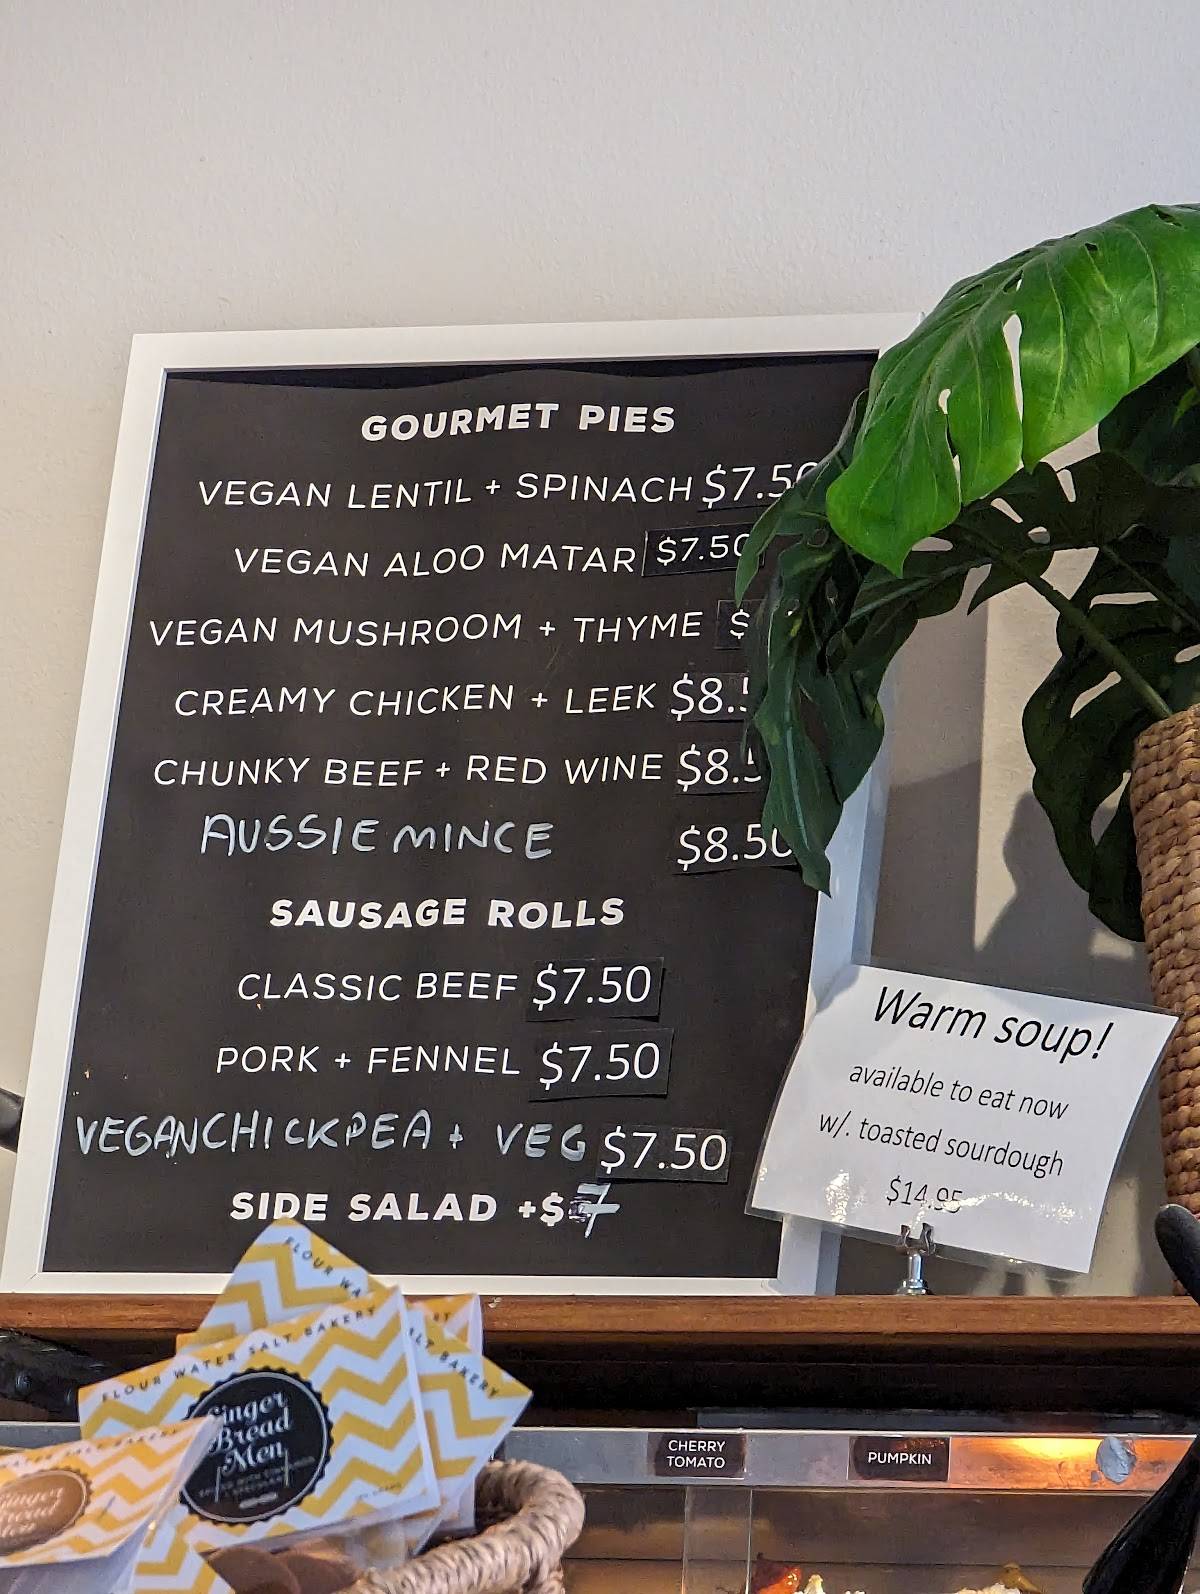 GOURMET PIES
VEGAN LENTIL + SPINACH $7.50
VEGAN ALOO MATAR $7.50
VEGAN MUSHROOM + THYME $
CREAMY CHICKEN + LEEK $8.5
CHUNKY BEEF + RED WINE $8.5
AUSSIE MINCE $8.50
SAUSAGE ROLLS
CLASSIC BEEF $7.50
PORK + FENNEL $7.50
VEGAN CHICKPEA + VEG $7.50
SIDE SALAD +$7
Warm soup!
available to eat now
w/. toasted sourdough
$14.95
FLOUR WA
FLOUR WATER SALT BAKERY
LT BAKERY
Ginger
Bread
Men
CHERRY
TOMATO
PUMPKIN